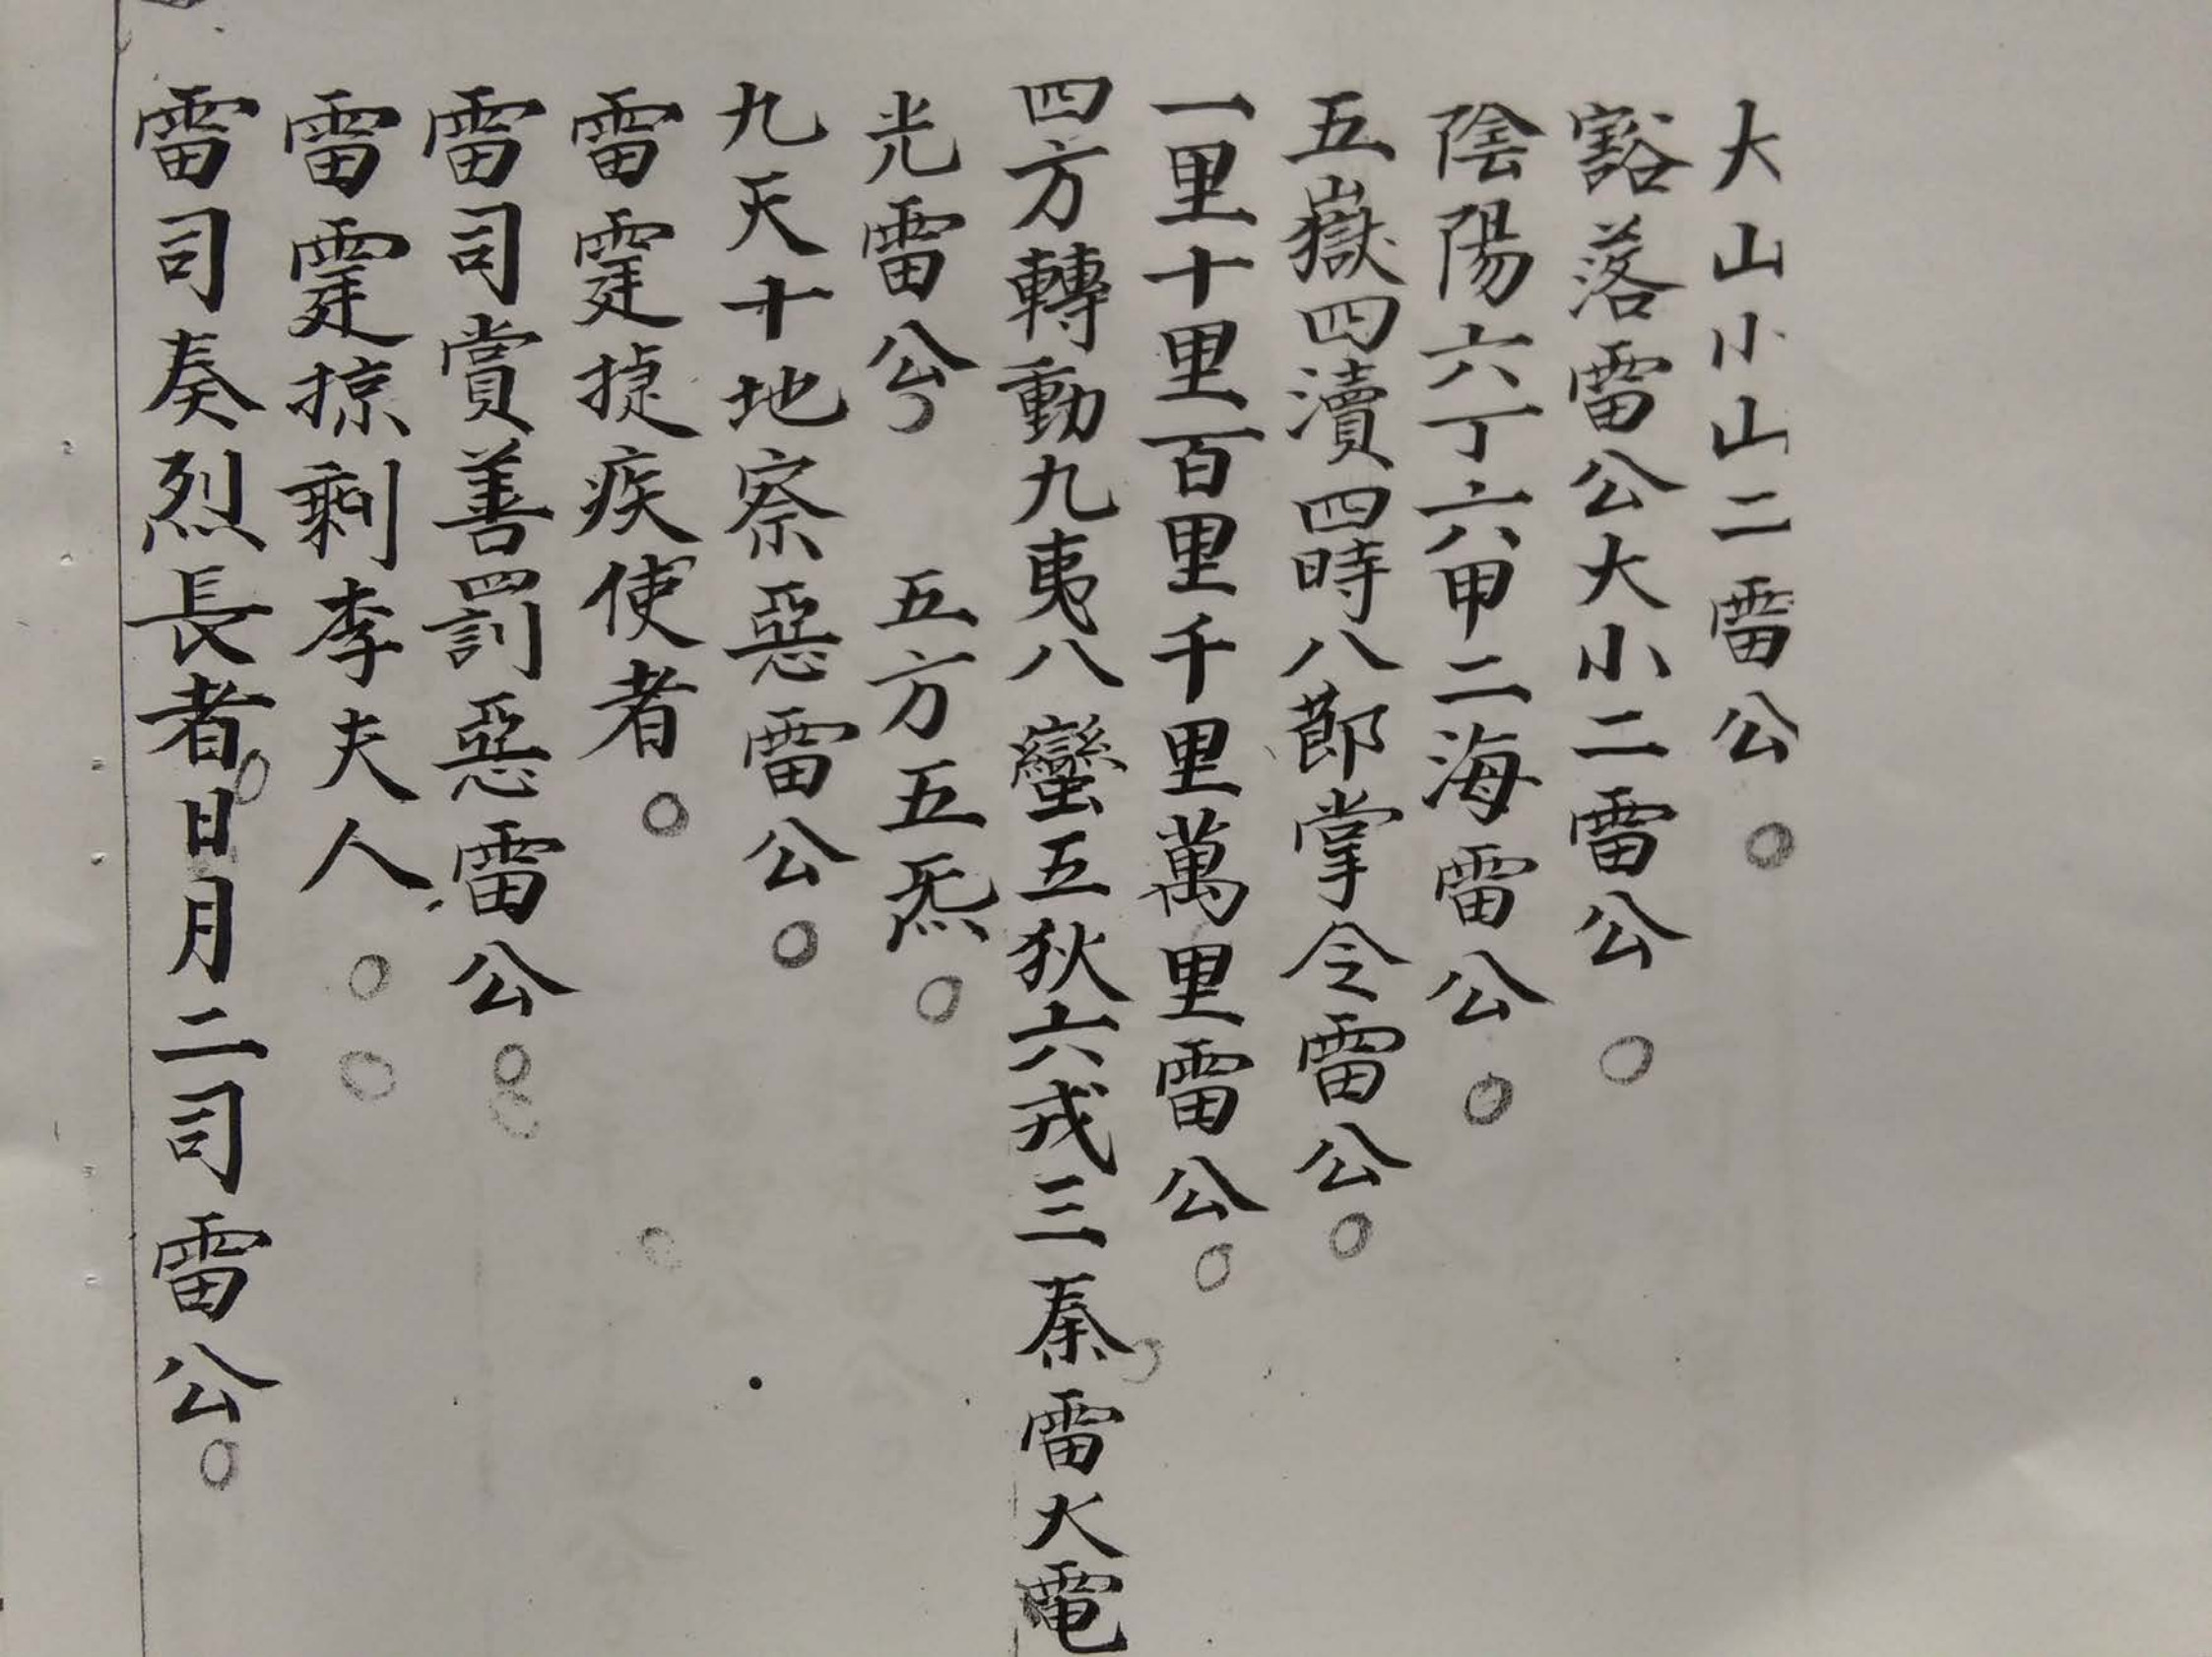 大山小山二雷公。
豁落雷公大小二雷公。
陰陽六丁六甲二海雷公。
五嶽四瀆四時八節掌令雷公。
一里十里百里千里萬里雷公。
四方轉動九夷八蠻五狄六戎三秦雷火電
光雷公 五方五炁。
九天十地察惡雷公。
雷霆捷疾使者。
雷司賞善罰惡雷公。
雷霆掠剩李夫人。
雷司奏烈長者。日月二司雷公。